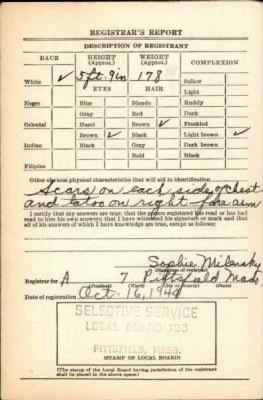 REGISTRAR'S REPORT
DESCRIPTION OF REGISTRANT
RACE HEIGHT (Approx.) WEIGHT (Approx.) COMPLEXION
White ✓ 5 ft. 9 in 178 Sallow
EYES HAIR Light
Negro Blue Blonde Ruddy
Gray Red Dark
Oriental Hazel Brown ✓ Freckled
Brown ✓ Black Light brown ✓
Indian Black Gray Dark brown
Bald Black
Filipino
Other obvious physical characteristics that will aid in identification
Scars on each side of chest
and tatoo on right fore arm
I certify that my answers are true; that the person registered has read or has had
read to him his own answers; that I have witnessed his signature or mark and that
all of his answers of which I have knowledge are true, except as follows:
Sophie
(Signature of registrar)
Registrar for A 7 Pittsfield Mass
(Precinct) (Ward) (City or County) (State)
Date of registration Oct. 16, 1940
SELECTIVE SERVICE
LOCAL BOARD 133
PITTSFIELD, MASS.
(STAMP OF LOCAL BOARD)
(The stamp of the Local Board having jurisdiction of the registrant
shall be placed in the above space.)